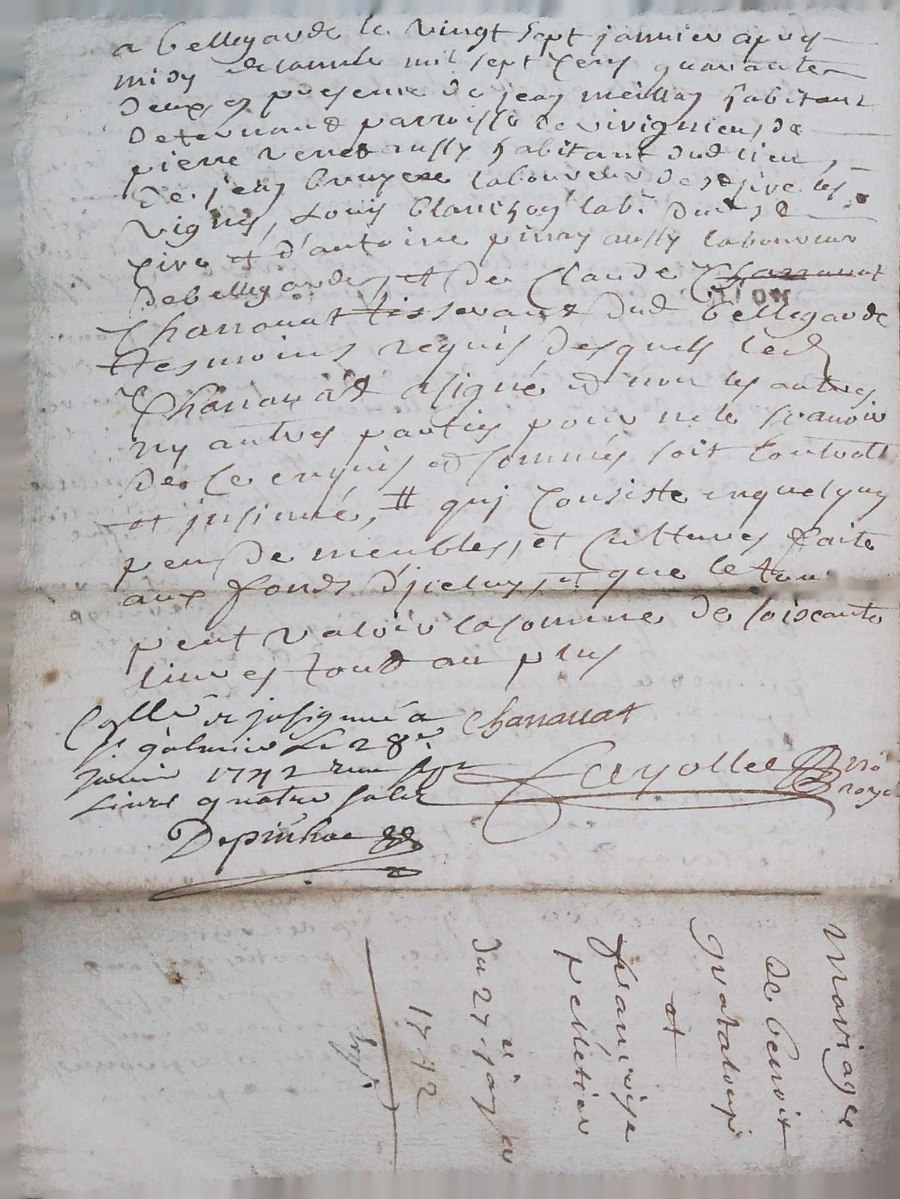 a bellegarde le vingt sept janvier apres
midy de lannée mil sept cens quarante
deux es presence de jean meillan habitant
de parroisse de
pierre aussy habitant dud lieu,
de jean bruyere laboureur de les
vignes, Louis blanchon lab.r
et d'antoine pinay aussy laboureur
de bellegarde, et de Claude
Chanauat tisserant dud bellegarde
tesmoins requis desquels led
Chanauat a signé et non les autres
ny autres parties pour ne le scauoir
de ce enquis et sommés soit controllé
et insinué, # qui consiste en quelque
peu de meubles, et cultures faite
aux fonds d'jceluy, et que le tout
peut valoir la somme de soixante
liures tout au plus
Chanauat
Collé et insinué a
st galmier le 28e
janvier 1742
Liures quatre sols
Fayolle no
royal
Mariage
de benoit
et
françoise
pelletier
du 27e janer
1742